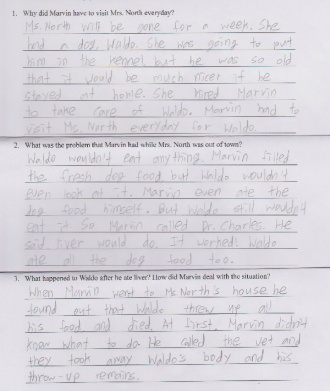 1. Why did Marvin have to visit Mrs. North everyday?
Ms. North will be gone for a week. She
had a dog, Waldo. She was going to put
him in the kennel, but he was so old
that it would be much nicer if he
stayed at home. She hired Marvin
to take care of Waldo. Marvin had to
visit Ms. North everyday for Waldo.
2. What was the problem that Marvin had while Mrs. North was out of town?
Waldo wouldn't eat anything. Marvin filled
the fresh dog food but Waldo wouldn't
even look at it. Marvin even ate the
dog food himself. But Waldo still wouldn't
eat it. So Marvin called Dr. Charles. He
said liver would do. It worked. Waldo
ate all the dog food too.
3. What happened to Waldo after he ate liver? How did Marvin deal with the situation?
When Marvin went to Ms North's house, he
found out that Waldo threw up all
his food and died. At first, Marvin didn't
know what to do. He called the vet and
they took away Waldo's body and his
throw-up remains.